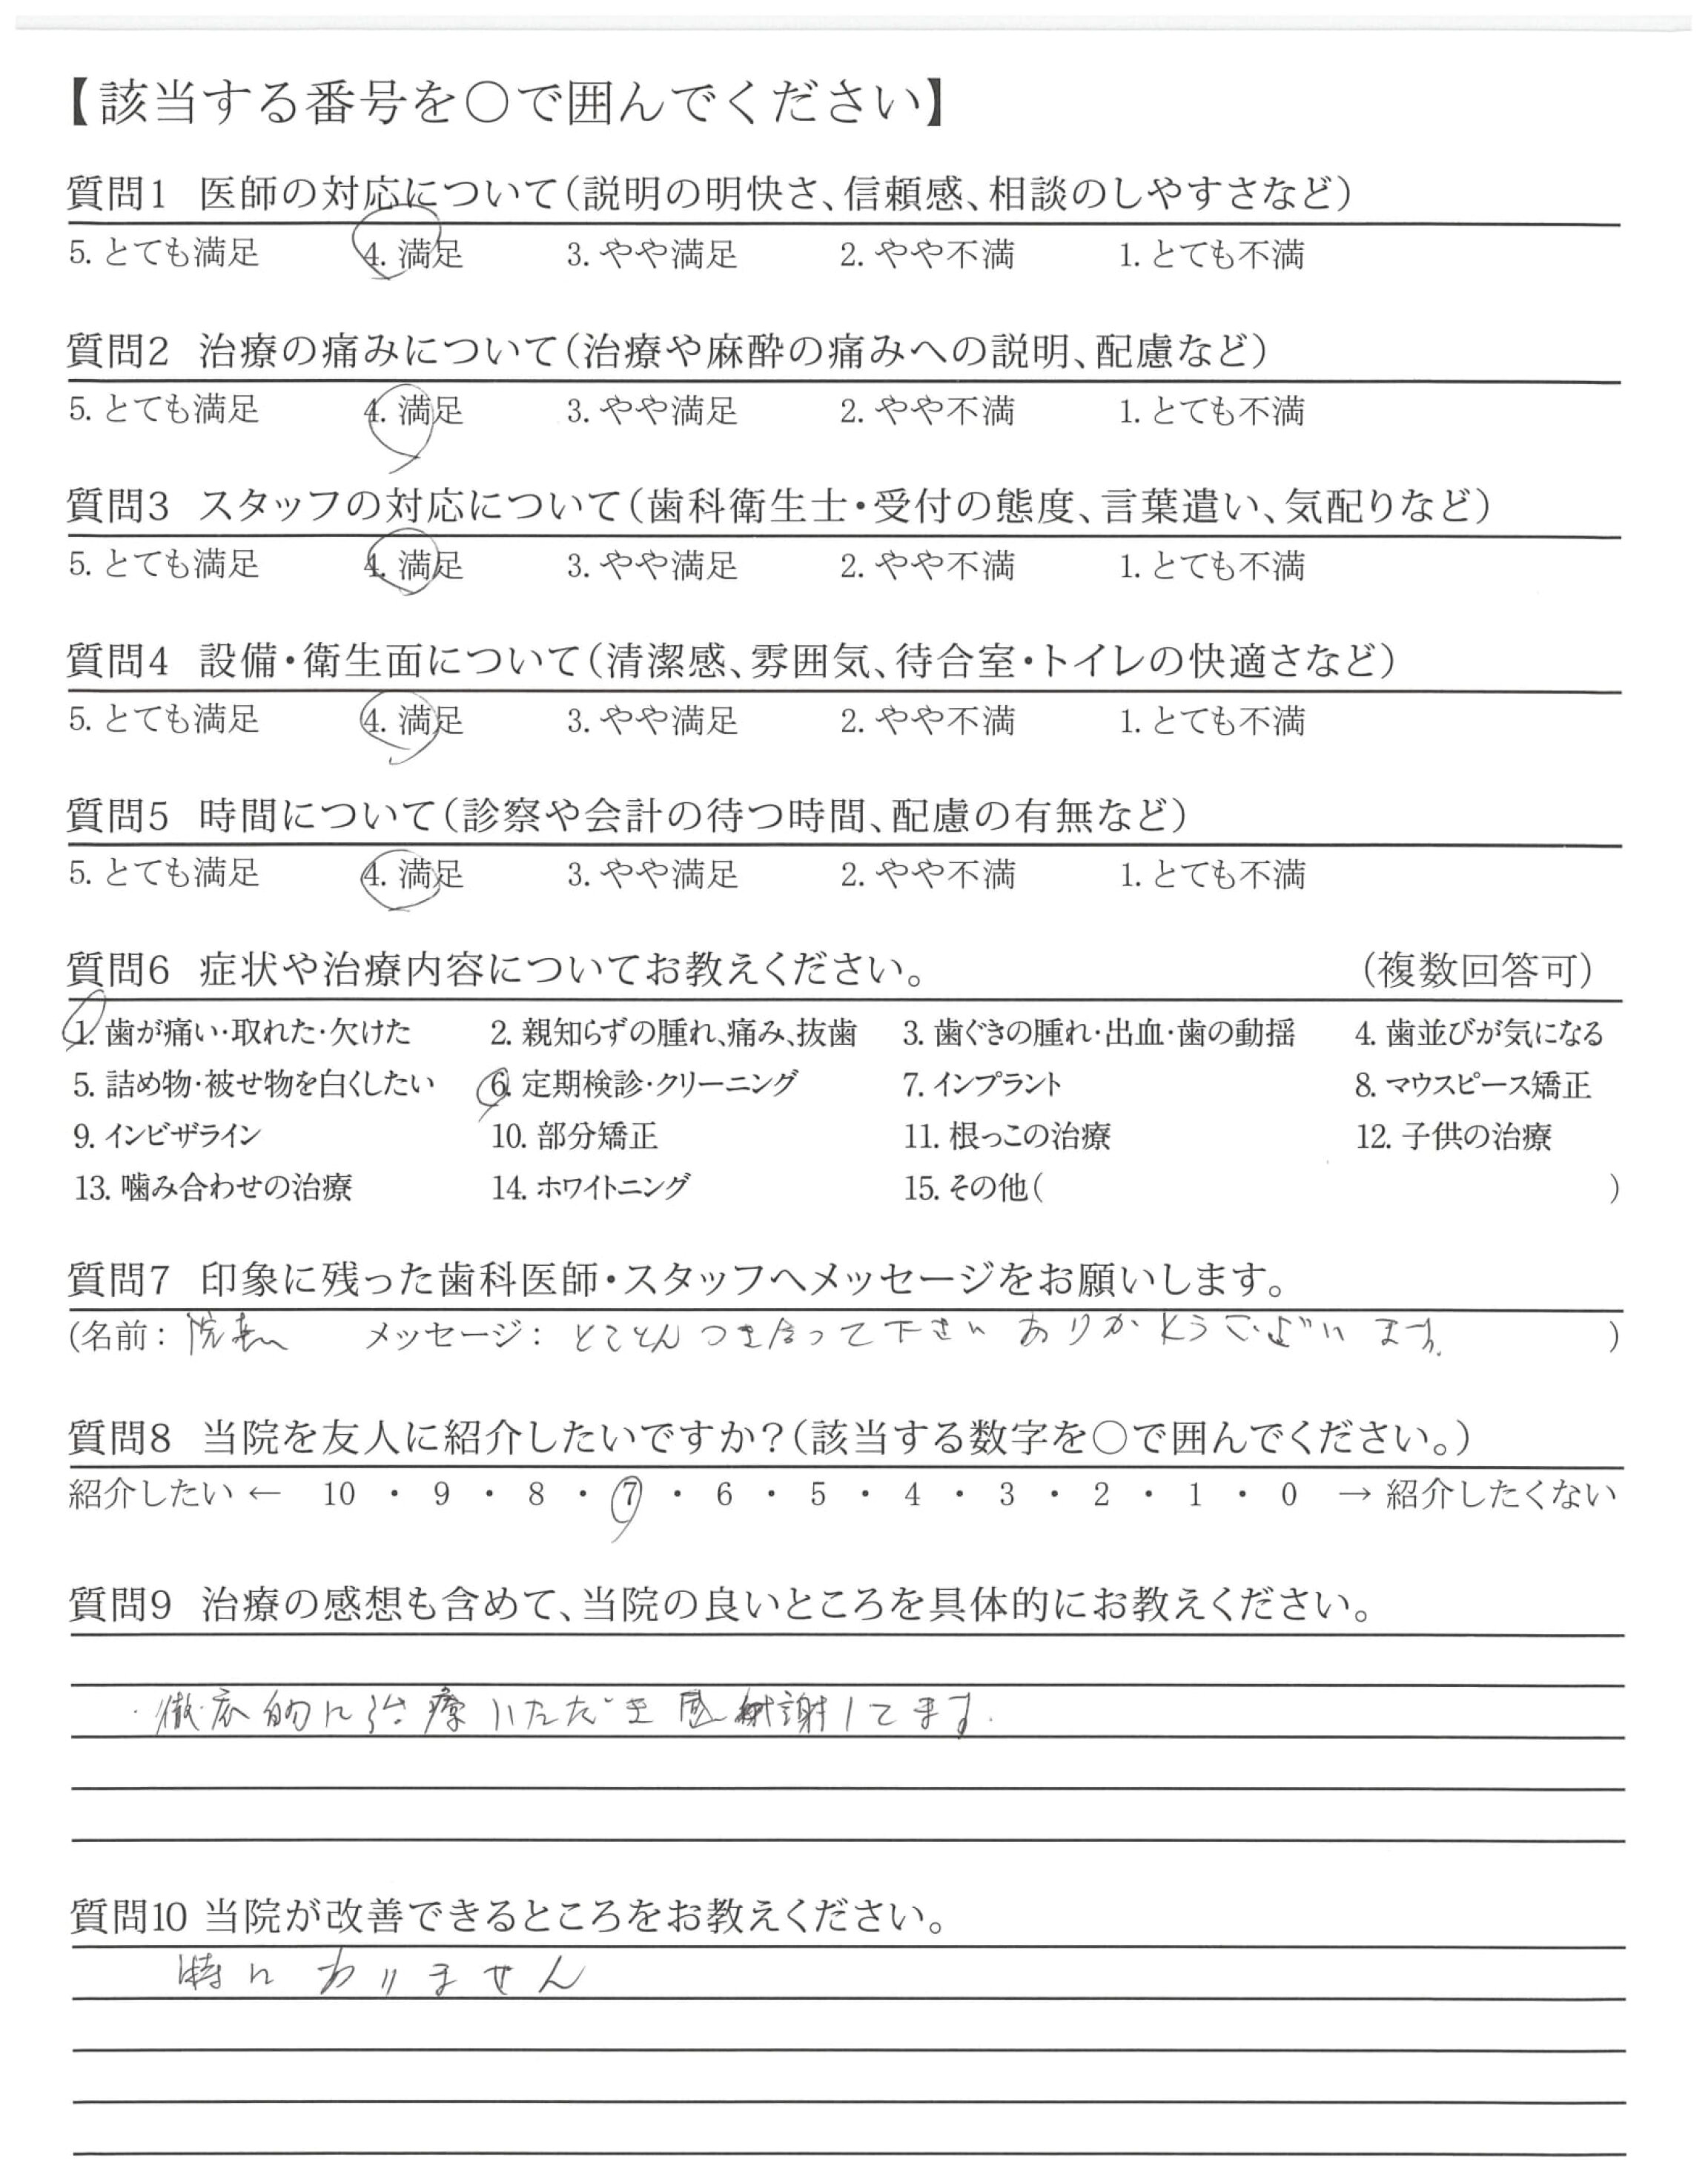 【該当する番号を○で囲んでください】
質問1 医師の対応について(説明の明快さ、信頼感、相談のしやすさなど)
5. とても満足 4. 満足 3. やや満足 2. やや不満 1. とても不満
質問2 治療の痛みについて(治療や麻酔の痛みへの説明、配慮など)
5. とても満足 4. 満足 3. やや満足 2. やや不満 1. とても不満
質問3 スタッフの対応について(歯科衛生士・受付の態度、言葉遣い、気配りなど)
5. とても満足 4. 満足 3. やや満足 2. やや不満 1. とても不満
質問4 設備・衛生面について(清潔感、雰囲気、待合室・トイレの快適さなど)
5. とても満足 4. 満足 3. やや満足 2. やや不満 1. とても不満
質問5 時間について(診察や会計の待つ時間、配慮の有無など)
5. とても満足 4. 満足 3. やや満足 2. やや不満 1. とても不満
質問6 症状や治療内容についてお教えください。 (複数回答可)
1. 歯が痛い・取れた・欠けた 2. 親知らずの腫れ、痛み、抜歯 3. 歯ぐきの腫れ・出血・歯の動揺 4. 歯並びが気になる
5. 詰め物・被せ物を白くしたい 6. 定期検診・クリーニング 7. インプラント 8. マウスピース矯正
9. インビザライン 10. 部分矯正 11. 根っこの治療 12. 子供の治療
13. 噛み合わせの治療 14. ホワイトニング 15. その他( )
質問7 印象に残った歯科医師・スタッフへメッセージをお願いします。
(名前: 院長 メッセージ: とことんつき合って下さい ありがとうございます。 )
質問8 当院を友人に紹介したいですか?(該当する数字を○で囲んでください。)
紹介したい ← 10 ・ 9 ・ 8 ・ 7 ・ 6 ・ 5 ・ 4 ・ 3 ・ 2 ・ 1 ・ 0 → 紹介したくない
質問9 治療の感想も含めて、当院の良いところを具体的にお教えください。
・徹底的に治療いただき感謝してます.
質問10 当院が改善できるところをお教えください。
特にありません